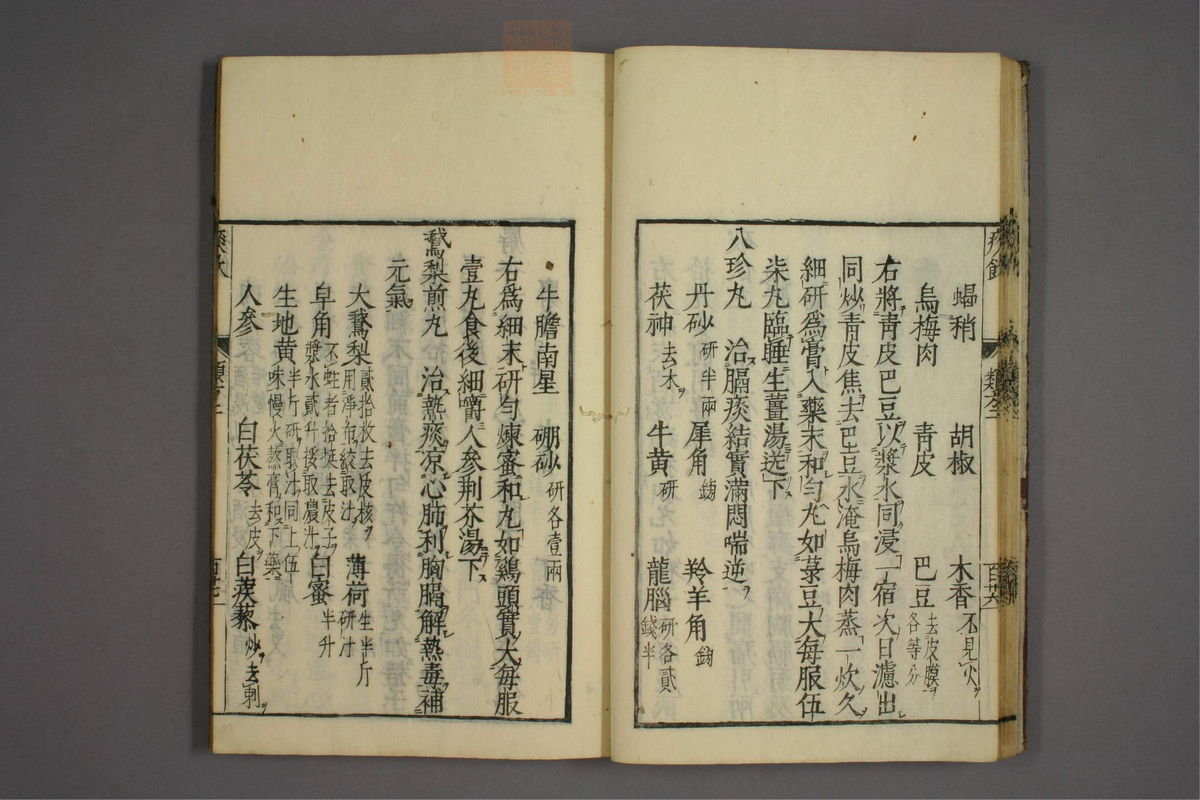 蝎稍 胡椒 木香不見火
烏梅肉 青皮 巴豆去皮膜各等分
右將青皮巴豆以漿水同浸一宿次日濾出
同炒青皮焦去巴豆水淹烏梅肉蒸一炊久
細研爲膏入藥末和勻丸如菉豆大每服伍
柒丸臨睡生薑湯送下
八珍丸 治膈痰結實滿悶喘逆
丹砂研半兩 犀角鎊 羚羊角鎊
茯神去木 牛黄研 龍腦研各貳錢半
牛膽南星 硼砂研各壹兩
右爲細末研勻煉蜜和丸如鷄頭實大每服
壹丸食後細嚼人參荆芥湯下
鵞梨煎丸 治熱痰凉心肺利胸膈解熱毒補
元氣
大鵞梨貳拾枚去皮核用淨布絞取汁 薄荷生半斤研汁
皁角不蛀者拾挺去皮子漿水貳升挼取濃汁 白蜜半升
生地黄半斤研取汁同上伍味慢火熬膏和下藥
人參 白茯苓去皮 白蒺藜炒去刺